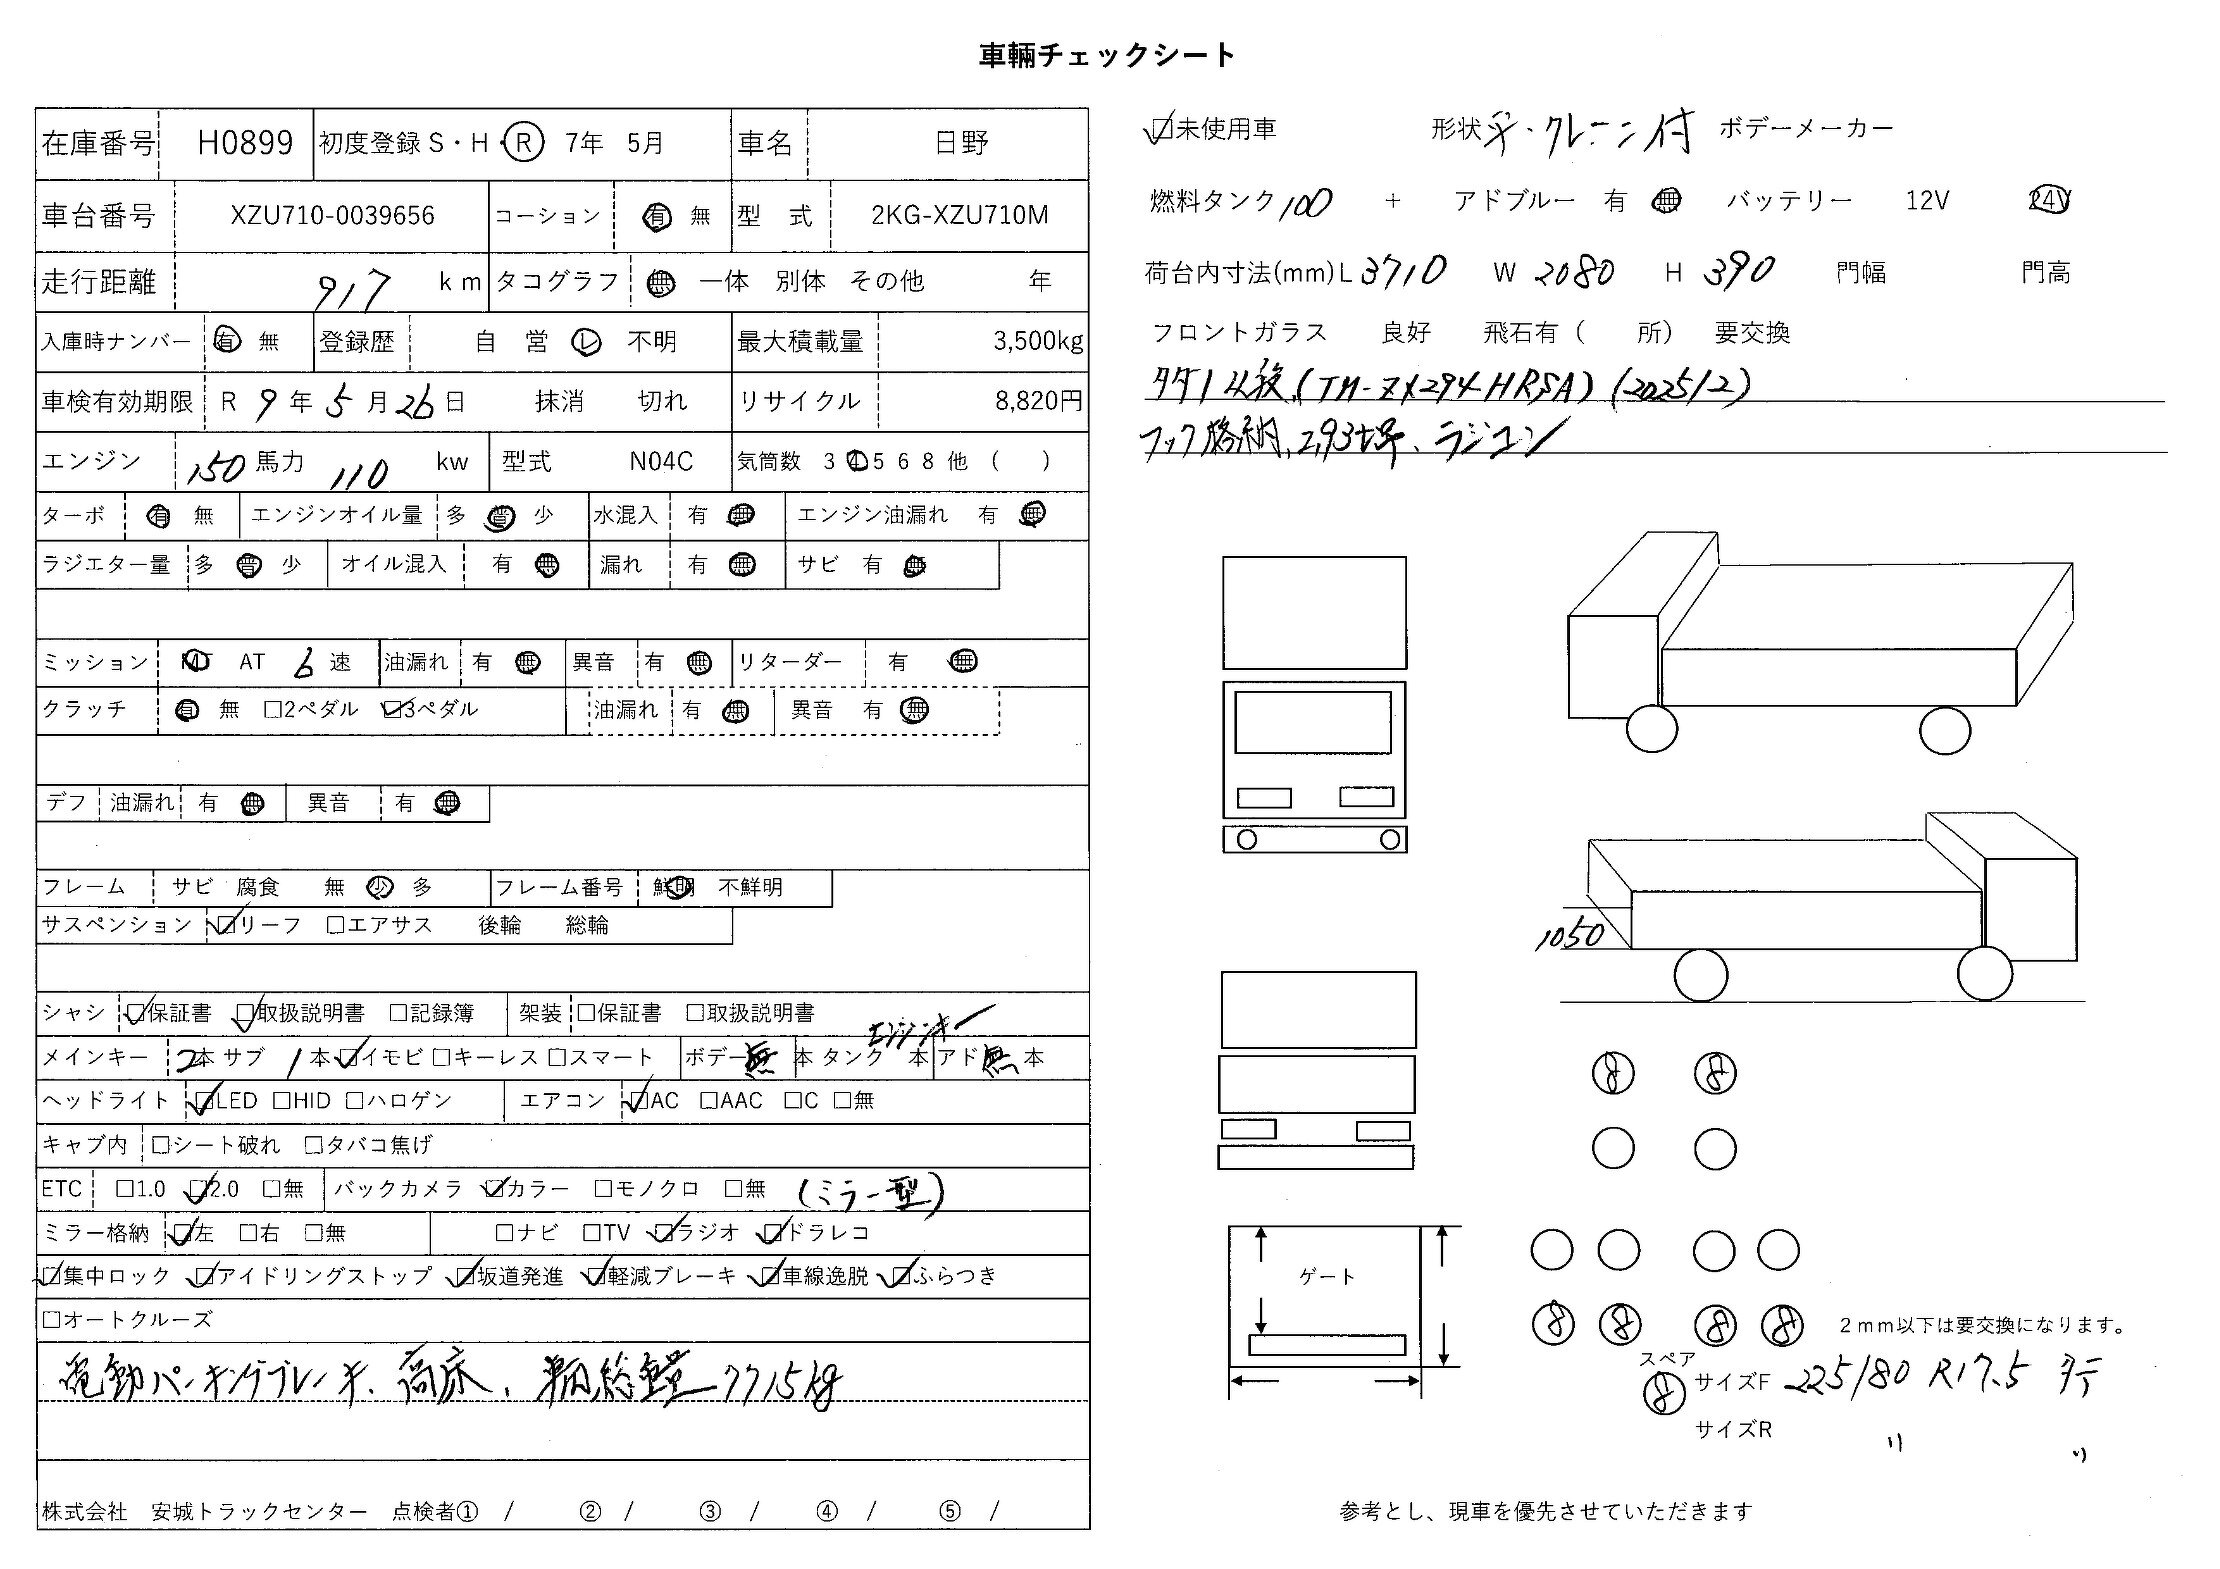 車輛チェックシート
在庫番号 H0899 初度登録 S・H・R 7年 5月 車名 日野
車台番号 XZU710-0039656 コーション 有 無 型 式 2KG-XZU710M
走行距離 917 km タコグラフ 無 一体 別体 その他 年
入庫時ナンバー 有 無 登録歴 自 営 レ 不明 最大積載量 3,500kg
車検有効期限 R 9 年 5 月 26 日 抹消 切れ リサイクル 8,820円
エンジン 150 馬力 110 kw 型式 N04C 気筒数 3 4 5 6 8 他 ( )
ターボ 有 無 エンジンオイル量 多 普 少 水混入 有 無 エンジン油漏れ 有 無
ラジエター量 多 普 少 オイル混入 有 無 漏れ 有 無 サビ 有 無
ミッション MT AT 6 速 油漏れ 有 無 異音 有 無 リターダー 有 無
クラッチ 有 無 □2ペダル ☑3ペダル 油漏れ 有 無 異音 有 無
デフ 油漏れ 有 無 異音 有 無
フレーム サビ 腐食 無 少 多 フレーム番号 鮮明 不鮮明
サスペンション ☑リーフ □エアサス 後輪 総輪
シャシ ☑保証書 ☑取扱説明書 □記録簿 架装 □保証書 □取扱説明書
エンジンキー
メインキー 2本 サブ 1本 ☑イモビ □キーレス □スマート ボデー 無 本 タンク 本 アド 無 本
ヘッドライト ☑LED □HID □ハロゲン エアコン ☑AC □AAC □C □無
キャブ内 □シート破れ □タバコ焦げ
ETC □1.0 ☑2.0 □無 バックカメラ ☑カラー □モノクロ □無 (ミラー型)
ミラー格納 ☑左 □右 □無 □ナビ □TV ☑ラジオ ☑ドラレコ
☑集中ロック ☑アイドリングストップ ☑坂道発進 ☑軽減ブレーキ ☑車線逸脱 ☑ふらつき
□オートクルーズ
電動パーキングブレーキ、高床、車両総重量7715kg
株式会社 安城トラックセンター 点検者① / ② / ③ / ④ / ⑤ /
☑未使用車 形状 平・クレーン付 ボデーメーカー
燃料タンク 100 + アドブルー 有 無 バッテリー 12V 24V
荷台内寸法(mm) L 3710 W 2080 H 390 門幅 門高
フロントガラス 良好 飛石有 ( 所) 要交換
タダノ4段 (TM-ZX294HRSA) (2025/2)
フック格納、2.93t吊、ラジコン
1050
8 8
ゲート
8 8 8 8 2mm以下は要交換になります。
スペア
8 サイズF 225/80 R17.5
サイズR 〃 〃
参考とし、現車を優先させていただきます